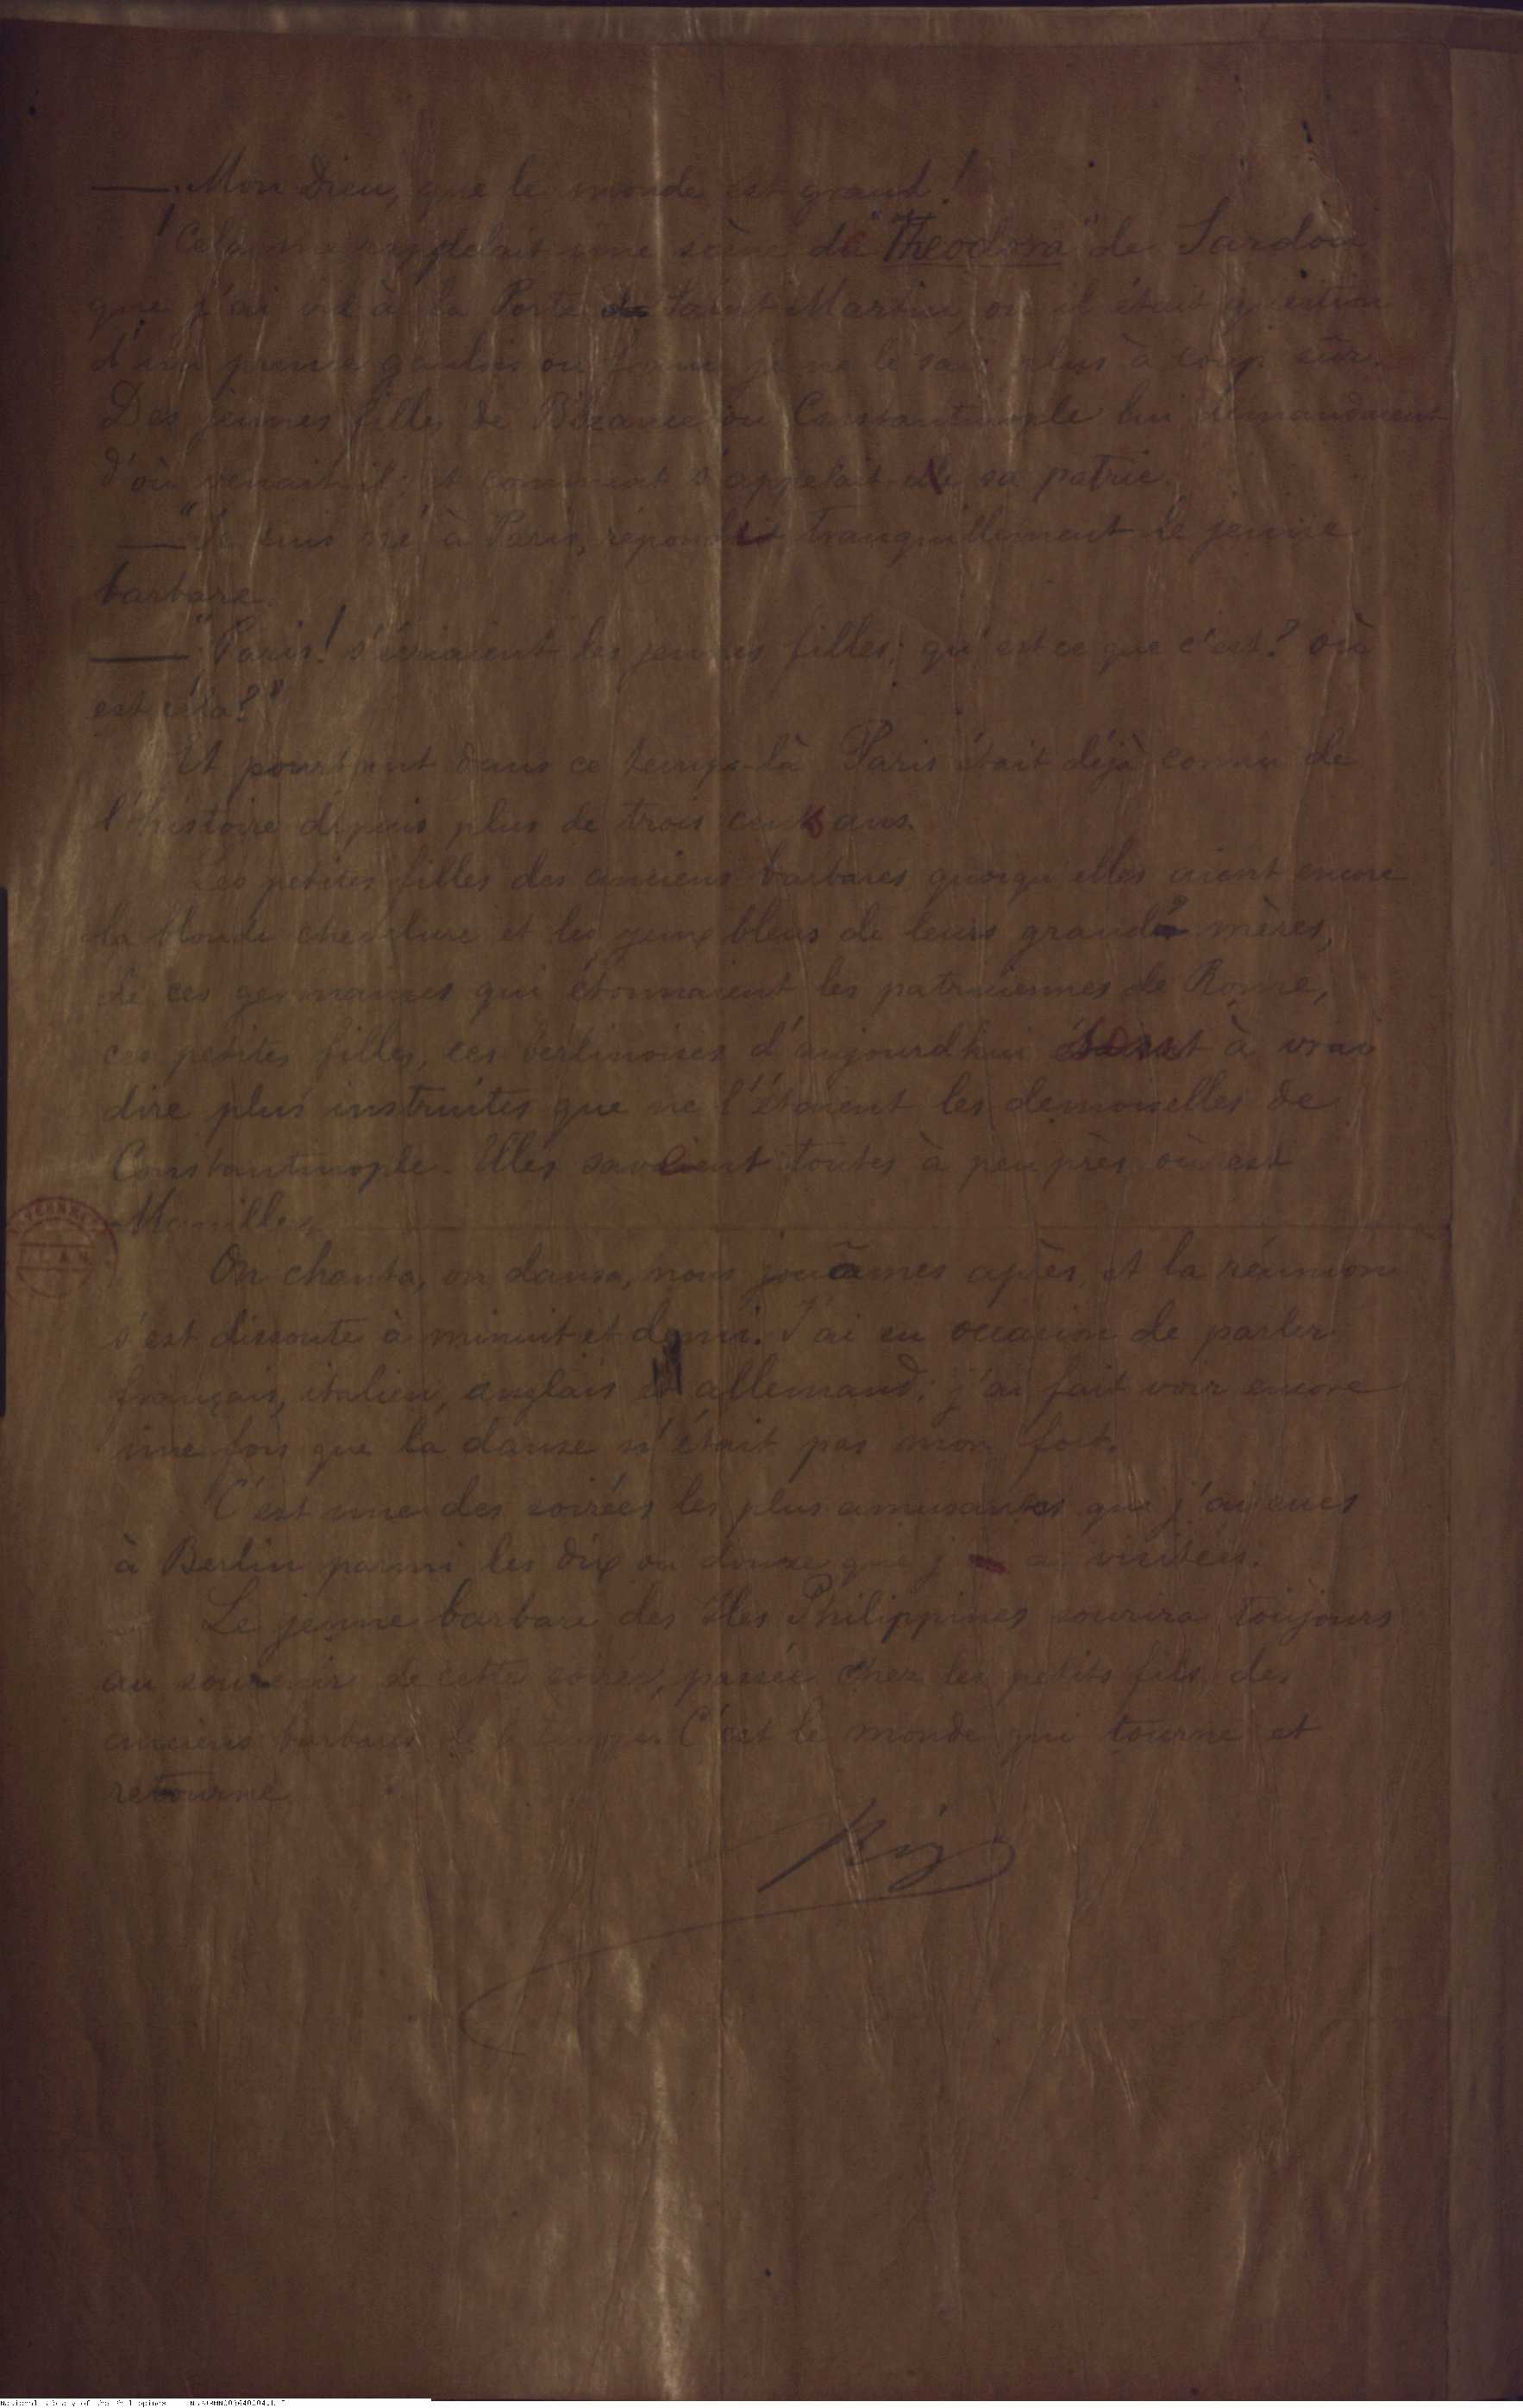 — Mon Dieu, que le monde est grand!
Cela me rappelait une scène de "Theodora" de Sardou
que j'ai vu à la Porte Saint Martin, où il était question
d'un preux gaulois ou franc je ne le sais plus à coup sûr.
Des jeunes filles de Bizance ou Constantinople lui demandaient
d'où venait-il; et comment s'appelait-elle sa patrie.
— "Je suis né à Paris, répondit tranquillement le jeune
barbare.
— "Paris! s'écriaient les jeunes filles; qu'est ce que c'est? où
est cela?"
Et pourtant dans ce temps-là Paris était déjà connu de
l'histoire depuis plus de trois cents ans.
Les petites filles des anciens barbares quoiqu'elles aient encore
la blonde chevelure et les yeux bleus de leurs grands mères,
de ces germaines qui étonnaient les patriciennes de Rome,
ces petites filles, ces berlinoises d'aujourdhui sont à vrai
dire plus instruites que ne l'étaient les demoiselles de
Constantinople. Elles savaient toutes à peu près où est
Manille.
On chanta, on dansa, nous jouâmes après, et la réunion
s'est dissoute à minuit et demi. J'ai eu occasion de parler
français, italien, anglais et allemand; j'ai fait voir encore
une fois que la danse n'était pas mon fort.
C'est une des soirées les plus amusantes que j'ai eues
à Berlin parmi les dix ou douze que j'ai visitées.
Le jeune barbare des îles Philippines sourira toujours
au souvenir de cette soirée, passée chez les petits fils des
anciens barbares C'est le monde qui tourne et
retourne
Riz